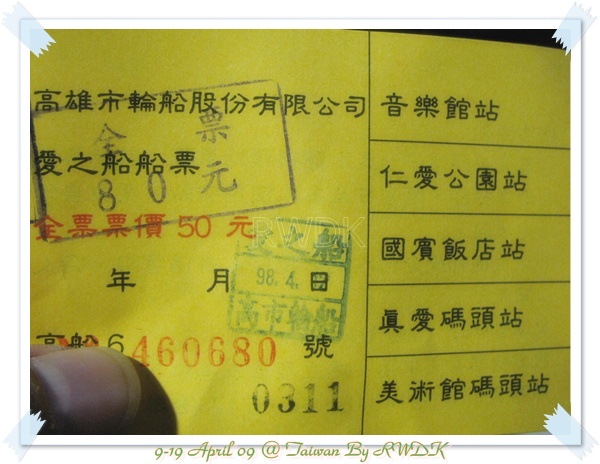 高雄市輪船股份有限公司
全票
80元
愛之船船票
全票票價50元
RWDK
愛之船
年 月 日
98.4.
高市輪船
高船6 460680 號
0311
音樂館站
仁愛公園站
國賓飯店站
真愛碼頭站
美術館碼頭站
9-19 April 09 @ Taiwan By RWDK